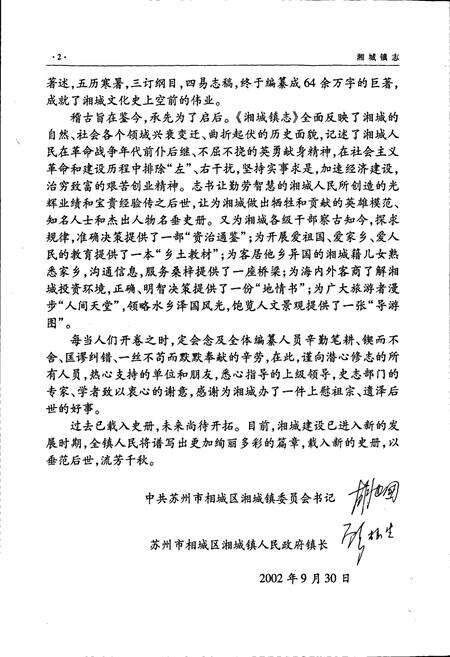 ·2·
湘城镇志
著述,五历寒暑,三订纲目,四易志稿,终于编纂成64余万字的巨著,
成就了湘城文化史上空前的伟业。
稽古旨在鉴今,承先为了启后。《湘城镇志》全面反映了湘城的
自然、社会各个领域兴衰变迁、曲折起伏的历史面貌,记述了湘城人
民在革命战争年代前仆后继、不屈不挠的英勇献身精神,在社会主义
革命和建设历程中排除“左”、右干扰,坚持实事求是,加速经济建设,
治穷致富的艰苦创业精神。志书让勤劳智慧的湘城人民所创造的光
辉业绩和宝贵经验传之后世,让为湘城做出牺牲和贡献的英雄模范、
知名人士和杰出人物名垂史册。又为湘城各级干部察古知今,探求
规律,准确决策提供了一部“资治通鉴”;为开展爱祖国、爱家乡、爱人
民的教育提供了一本“乡土教材”;为客居他乡异国的湘城籍儿女熟
悉家乡,沟通信息,服务桑梓提供了一座桥梁;为海内外客商了解湘
城投资环境,正确、明智决策提供了一份“地情书”;为广大旅游者漫
步“人间天堂”,领略水乡泽国风光,饱览人文景观提供了一张“导游
图”。
每当人们开卷之时,定会念及全体编纂人员辛勤笔耕、锲而不
舍、匡谬纠错、一丝不苟而默默奉献的辛劳,在此,谨向潜心修志的所
有人员,热心支持的单位和朋友,悉心指导的上级领导,史志部门的
专家、学者致以衷心的谢意,感谢为湘城办了一件上慰祖宗、遗泽后
世的好事。
过去已载入史册,未来尚待开拓。目前,湘城建设已进入新的发
展时期,全镇人民将谱写出更加绚丽多彩的篇章,载入新的史册,以
垂范后世,流芳千秋。
中共苏州市相城区湘城镇委员会书记
苏州市相城区湘城镇人民政府镇长
2002年9月30日